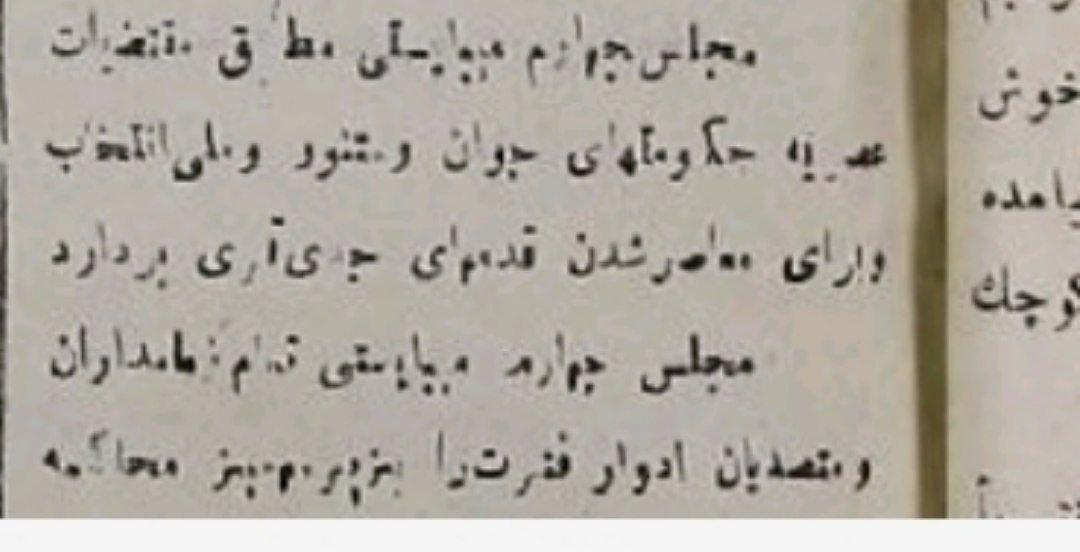 مجلس چهارم میبایستی مطابق مقتضیات
عصریه حکومتهای جوان و متنور و ملی انتخاب
وبرای معاصر شدن قدمهای جدی‌تری بردارد
مجلس چهارم میبایستی تمام زمامداران
و متصدیان ادوار فترت را بزیر میز محاکمه
خوش
کوچك